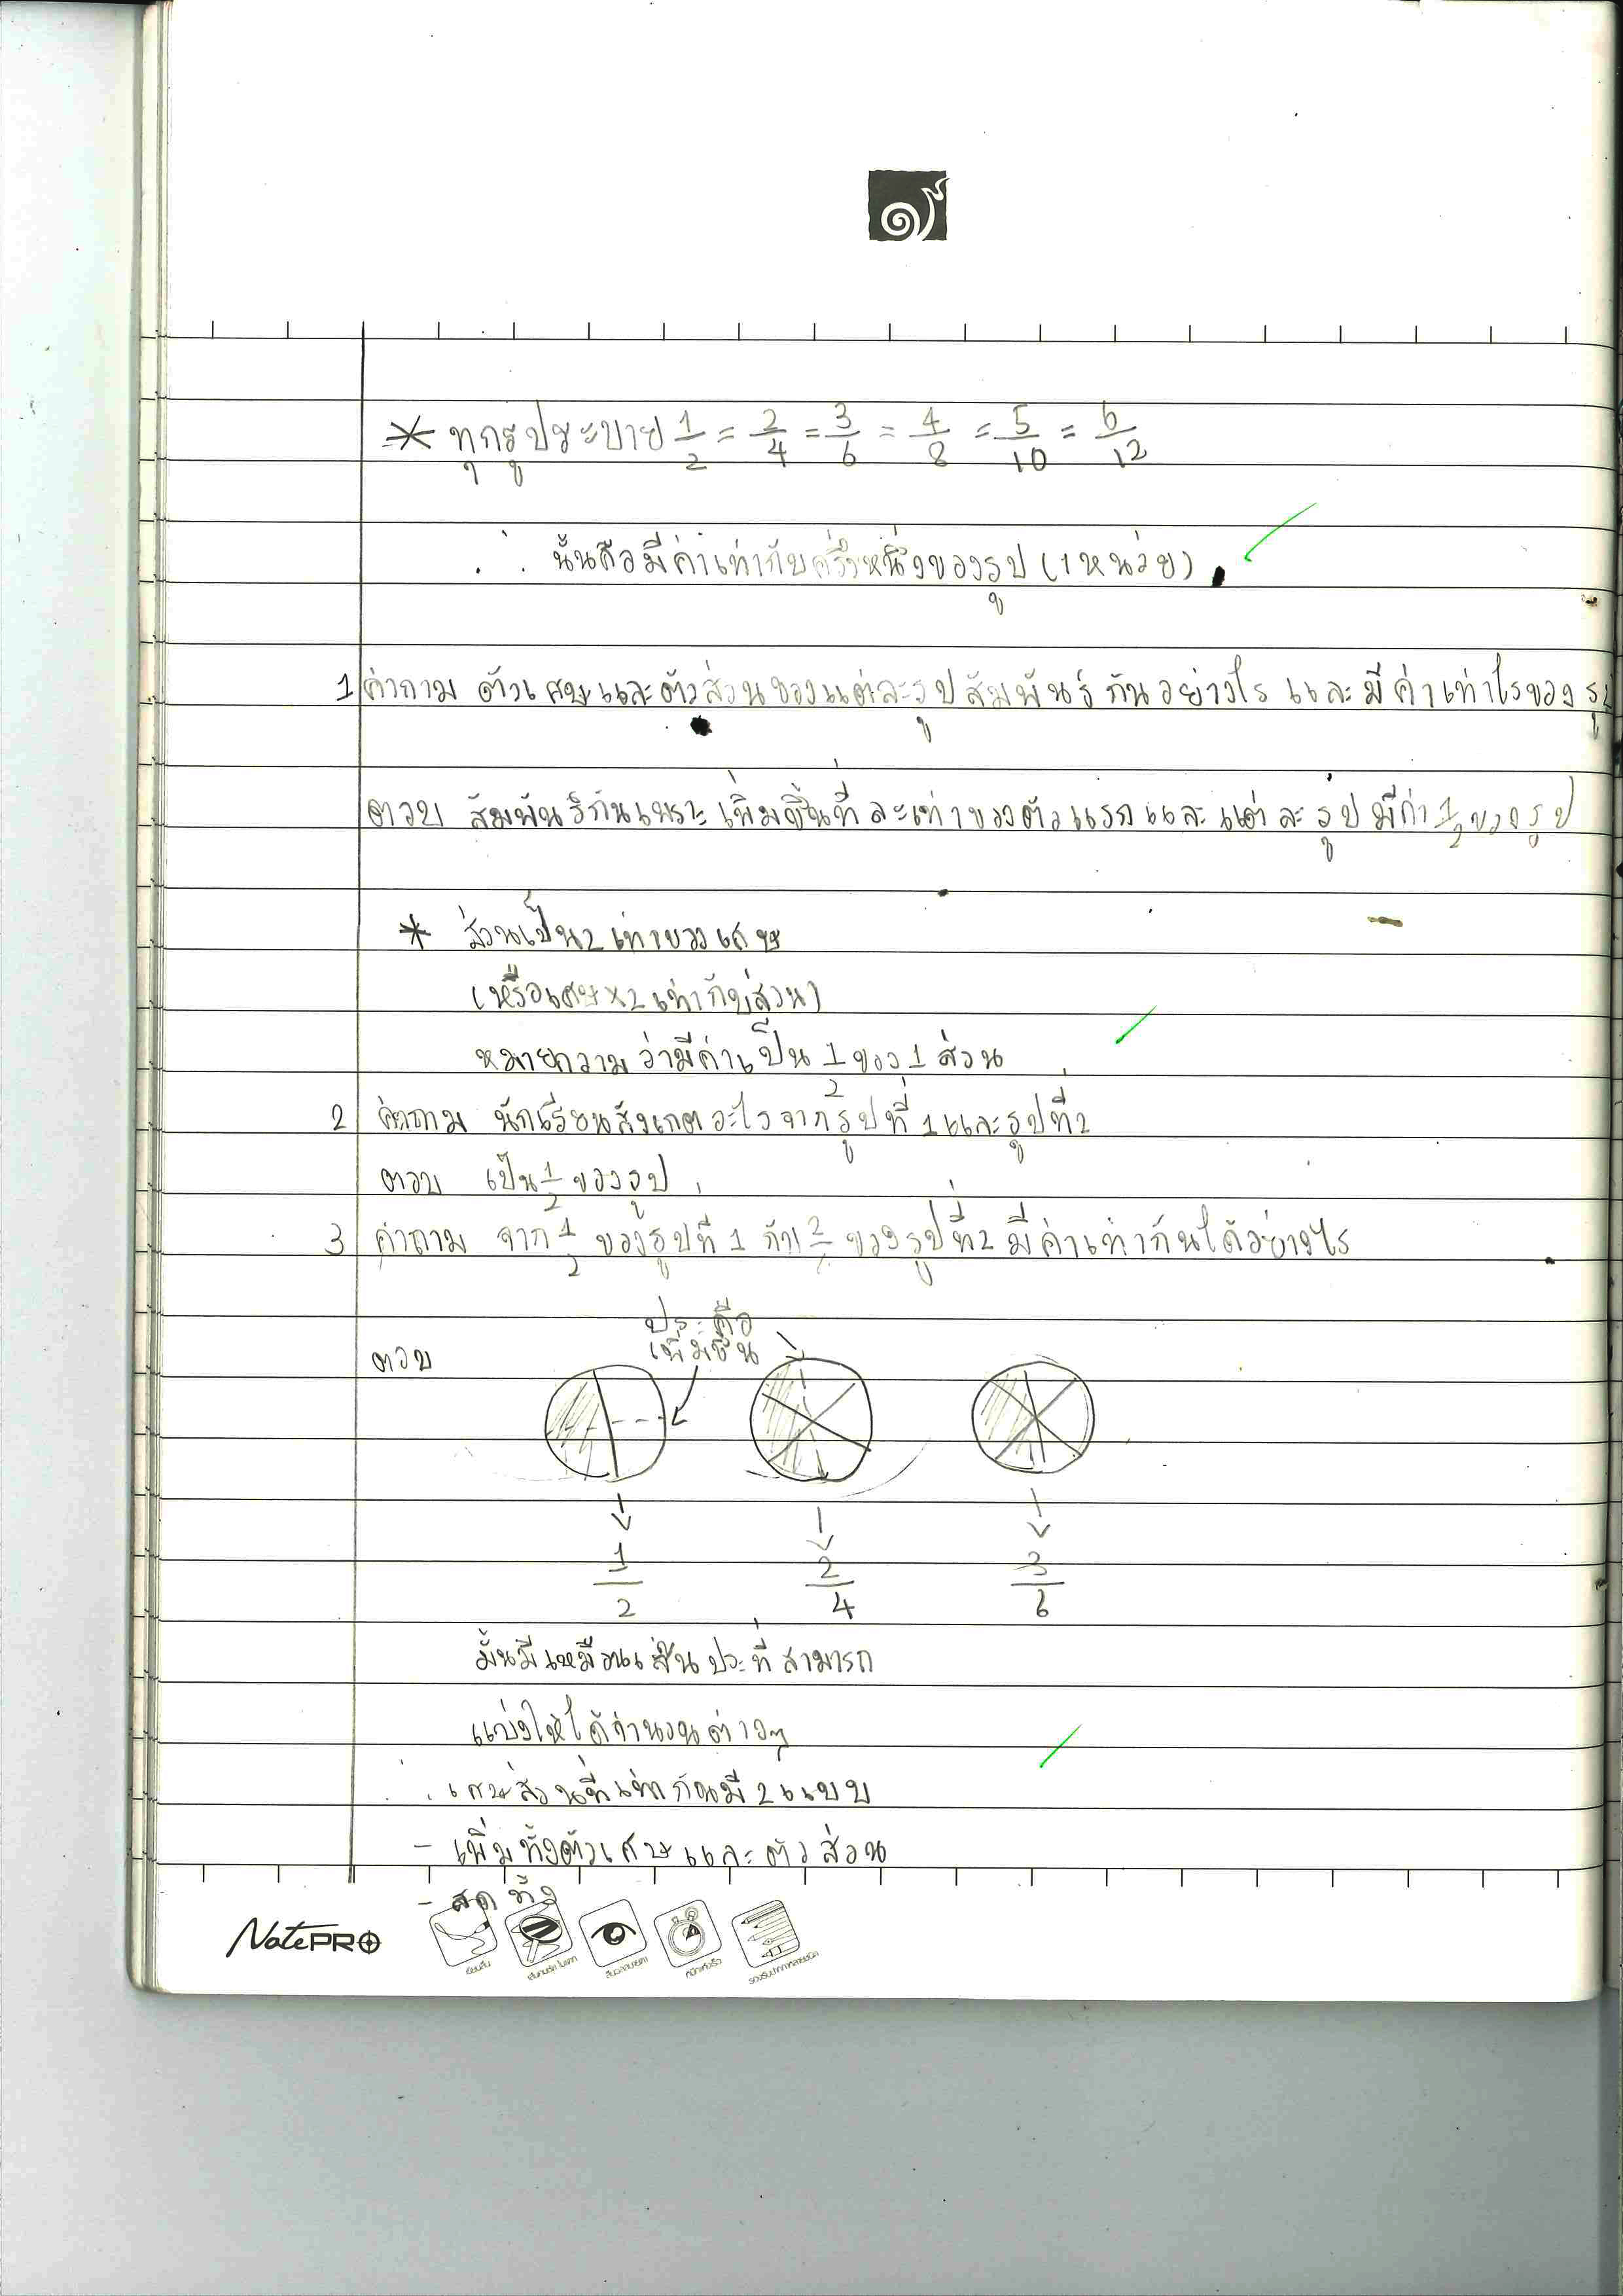 * ทุกรูประบาย 1/2 = 2/4 = 3/6 = 4/8 = 5/10 = 6/12
∴ นั้นคือมีค่าเท่ากับครึ่งหนึ่งของรูป (1 หน่วย)
1 คำถาม ตัวเศษและตัวส่วนของแต่ละรูปสัมพันธ์กันอย่างไร และมีค่าเท่าไรของรูป
ตอบ สัมพันธ์กันเพราะเพิ่มขึ้นทีละเท่าของตัวแรกและแต่ละรูปมีค่า 1/2 ของรูป
* ส่วนเป็น 2 เท่าของเศษ
(หรือเศษ x 2 เท่ากับส่วน)
หมายความว่ามีค่าเป็น 1/2 ของ 1 ส่วน
2 คำถาม นักเรียนสังเกตอะไรจากรูปที่ 1 และรูปที่ 2
ตอบ เป็น 1/2 ของรูป
3 คำถาม จาก 1/2 ของรูปที่ 1 กับ 2/4 ของรูปที่ 2 มีค่าเท่ากันได้อย่างไร
ประคือ
เพิ่มชิ้น
ตอบ
1/2 2/4 3/6
มันมีเหมือนเส้นประที่สามารถ
แบ่งให้ได้จำนวนต่างๆ
∴ เศษส่วนที่เท่ากันมี 2 แบบ
- เพิ่มทั้งตัวเศษและตัวส่วน
- ลดทั้ง
NotePRO